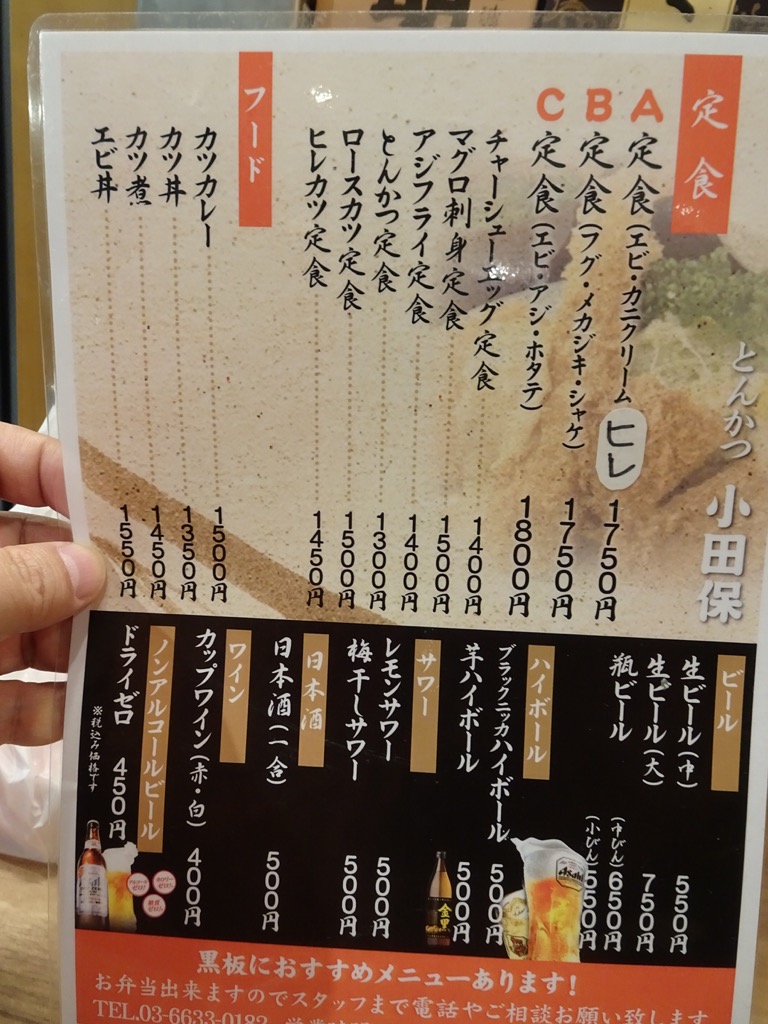 とんかつ 小田保
定食
A 定食(エビ・カニクリーム ヒレ 1750円
B 定食(フグ・メカジキ・シャケ) 1750円
C 定食(エビ・アジ・ホタテ) 1800円
チャーシューエッグ定食 1400円
マグロ刺身定食 1500円
アジフライ定食 1400円
とんかつ定食 1300円
ロースカツ定食 1500円
ヒレカツ定食 1450円
フード
カツカレー 1500円
カツ丼 1350円
カツ煮 1450円
エビ丼 1550円
ビール
生ビール(中) 550円
生ビール(大) 750円
瓶ビール (中びん) 650円
(小びん) 550円
ハイボール
ブラックニッカハイボール 500円
芋ハイボール 500円
サワー
レモンサワー 500円
梅干しサワー 500円
日本酒
日本酒(一合) 500円
ワイン
カップワイン(赤・白) 400円
ノンアルコールビール
ドライゼロ 450円
※税込み価格です
金黒
Asahi
黒板におすすめメニューあります!
お弁当出来ますのでスタッフまで電話やご相談お願い致します
TEL.03-6633-0182